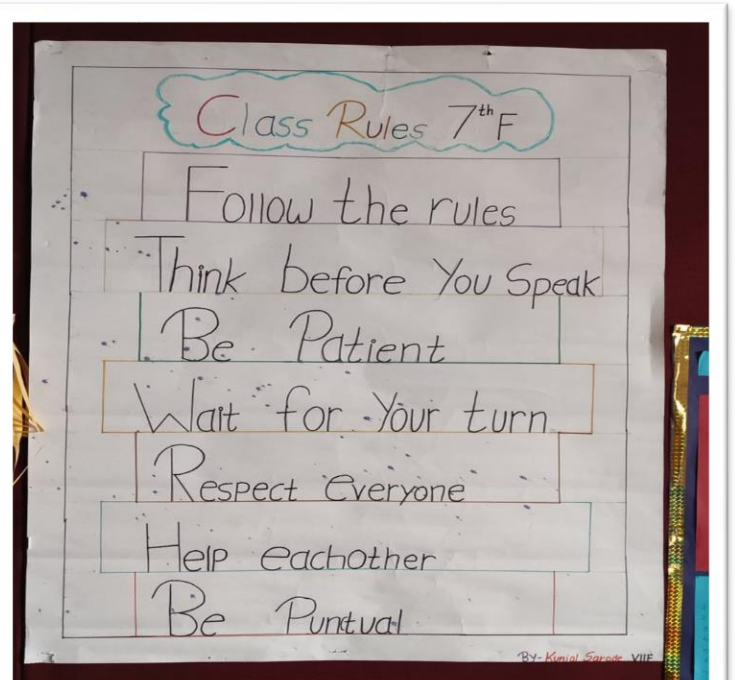 Class Rules 7th F
Follow the rules
Think before You Speak
Be Patient
Wait for Your turn
Respect everyone
Help eachother
Be Puntual
BY- Kunal Sarode VIIF